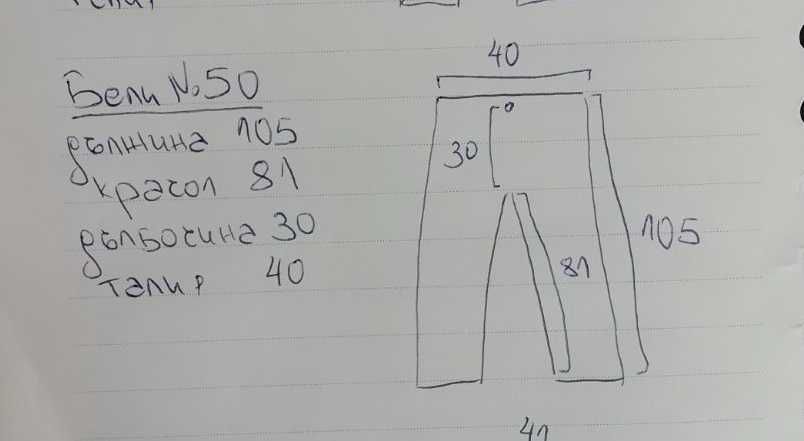 Бели №50
дължина 105
крачол 81
дълбочина 30
талия 40
40
30
105
81
41